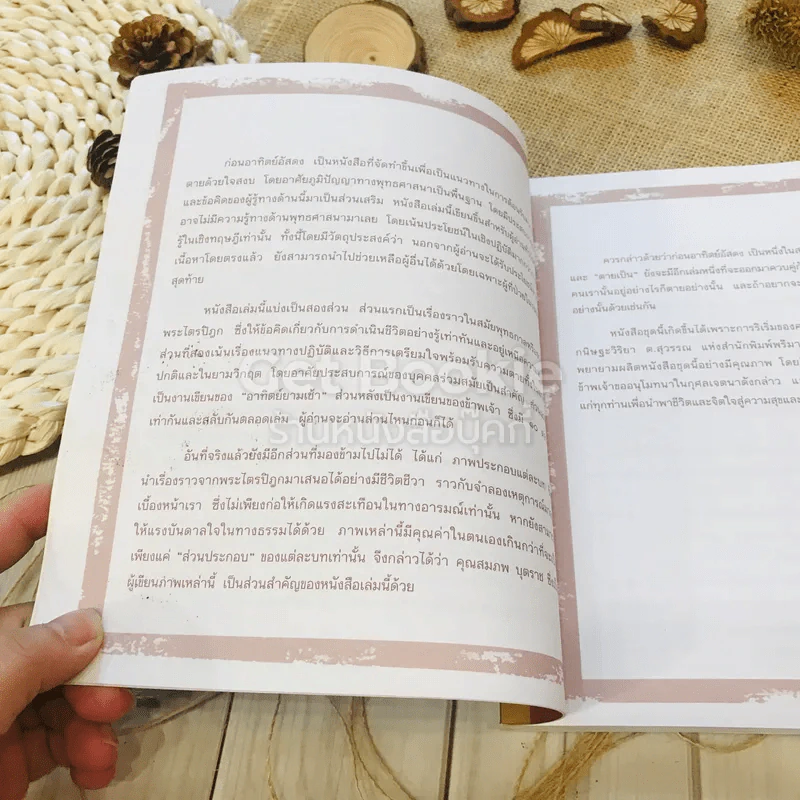 ก่อนอาทิตย์อัสดง เป็นหนังสือที่จัดทำขึ้นเพื่อเป็นแนวทางในการ
ตายด้วยใจสงบ โดยอาศัยภูมิปัญญาทางพุทธศาสนาเป็นพื้นฐาน
และข้อคิดของผู้รู้ทางด้านนี้มาเป็นส่วนเสริม หนังสือเล่มนี้เขียนขึ้นสำหรับผู้อ่าน
อาจไม่มีความรู้ทางด้านพุทธศาสนามาเลย โดยเน้นประโยชน์ในเชิงปฏิบัติ
รู้ในเชิงทฤษฎีเท่านั้น ทั้งนี้โดยมีวัตถุประสงค์ว่า นอกจากผู้อ่านจะได้รับ
เนื้อหาโดยตรงแล้ว ยังสามารถนำไปช่วยเหลือผู้อื่นได้ด้วยโดยเฉพาะผู้ที่
สุดท้าย
หนังสือเล่มนี้แบ่งเป็นสองส่วน ส่วนแรกเป็นเรื่องราวในสมัยพุทธกาล
พระไตรปิฎก ซึ่งให้ข้อคิดเกี่ยวกับการดำเนินชีวิตอย่างรู้เท่าทันและอยู่เหนือ
ส่วนที่สองเน้นเรื่องแนวทางปฏิบัติและวิธีการเตรียมใจพร้อมรับความตาย
ปกติและในยามวิกฤต โดยอาศัยประสบการณ์ของบุคคลร่วมสมัยเป็นสำคัญ
เป็นงานเขียนของ "อาทิตย์ยามเช้า" ส่วนหลังเป็นงานเขียนของข้าพเจ้า ซึ่งมี ๑๐
เท่ากันและสลับกันตลอดเล่ม ผู้อ่านจะอ่านส่วนไหนก่อนก็ได้
อันที่จริงแล้วยังมีอีกส่วนที่มองข้ามไปไม่ได้ ได้แก่ ภาพประกอบแต่ละบท
นำเรื่องราวจากพระไตรปิฎกมาเสนอได้อย่างมีชีวิตชีวา ราวกับจำลองเหตุการณ์
เบื้องหน้าเรา ซึ่งไม่เพียงก่อให้เกิดแรงสะเทือนในทางอารมณ์เท่านั้น หากยัง
ให้แรงบันดาลใจในทางธรรมได้ด้วย ภาพเหล่านี้มีคุณค่าในตนเองเกินกว่าที่จะ
เพียงแค่ "ส่วนประกอบ" ของแต่ละบทเท่านั้น จึงกล่าวได้ว่า คุณสมภพ บุตราช
ผู้เขียนภาพเหล่านี้ เป็นส่วนสำคัญของหนังสือเล่มนี้ด้วย
ควรกล่าวด้วยว่าก่อนอาทิตย์อัสดง เป็นหนึ่งใน
และ "ตายเป็น" ยังจะมีอีกเล่มหนึ่งที่จะออกมาควบคู่
คนเรานั้นอยู่อย่างไรก็ตายอย่างนั้น และถ้าอยากจะ
อย่างนั้นด้วยเช่นกัน
หนังสือชุดนี้เกิดขึ้นได้เพราะการริเริ่มของ
กนิษฐะวิริยา ต.สุวรรณ แห่งสำนักพิมพ์พรีมา
พยายามผลิตหนังสือชุดนี้อย่างมีคุณภาพ โดย
ข้าพเจ้าขออนุโมทนาในกุศลเจตนาดังกล่าว
แก่ทุกท่านเพื่อนำพาชีวิตและจิตใจสู่ความสุขและ
Get Bookie
ร้านหนังสือบุ๊คกี้